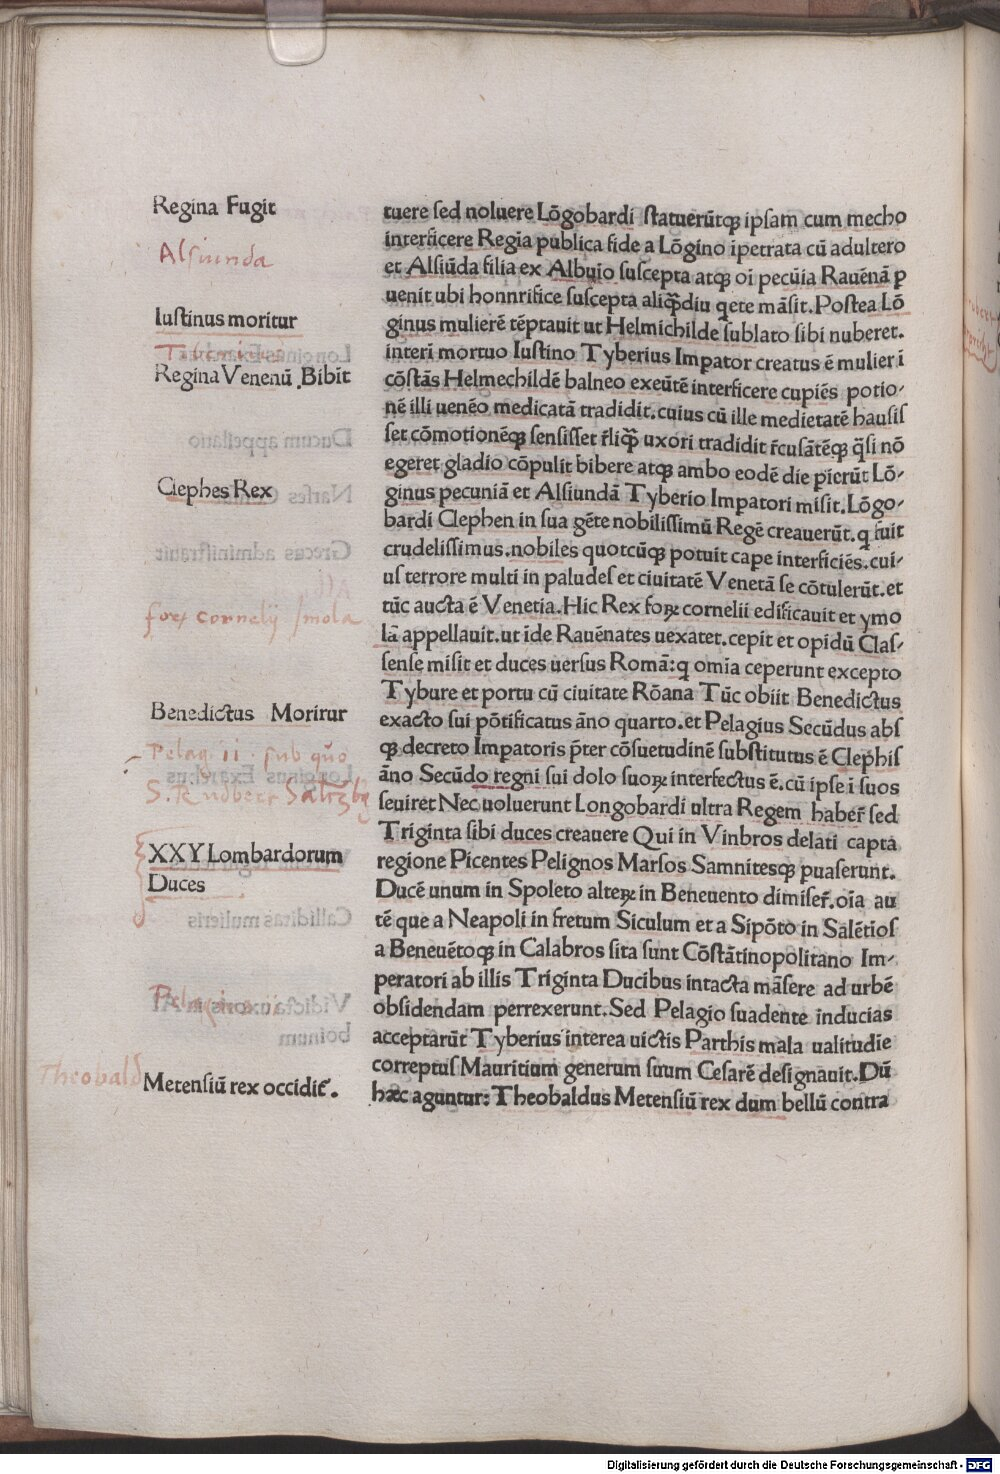 Regina Fugit
Alsiunda
Iustinus moritur
Tiberinus
Regina Venenū Bibit
Clephes Rex
forꝫ cornelij Imola
Benedictus Morirur
Pelag ii. sub quo
S. Rudbert Saltzbg
XXY Lombardorum
Duces
Pelagius ii
Theobald
Metensiū rex occidit̃.
tuere sed noluere Lōgobardi statuerūtqꝫ ipsam cum mecho
interficere Regīa publica fide a Lōgino īpetrata cū adultero
et Alsiūda filia ex Albuio suscepta atqꝫ oī pecūia Rauēnā p
uenit ubi honnrifice suscepta aliqͣdiu qete māsit. Postea Lō
ginus mulierē tēptauit ut Helmichilde sublato sibi nuberet.
interi mortuo Iustino Tyberius Impator creatus ē mulier i
cōstās Helmechildē balneo exeūtē interficere cupiēs potio⸗
nē illi uenēo medicatā tradidit. cuius cū ille medietatē hausis
set cōmotionēqꝫ sensisset r̄liqͣ uxori tradidit r̄cusātēqꝫ q̄si nō
egeret gladio cōpulit bibere atqꝫ ambo eodē die pierūt Lō⸗
ginus pecuniā et Alsiundā Tyberio Impatori misit. Lōgo⸗
bardi Clephen in sua gēte nobilissimū Regē creauerūt. q fuit
crudelissimus. nobiles quotcūqꝫ potuit cape interficiēs. cui⸗
us terrore multi in paludes et ciuitatē Venetā se cōtulerūt. et
tūc aucta ē Venetia. Hic Rex forꝫ cornelii edificauit et ymo
lā appellauit. ut īde Rauēnates uexatet. cepit et opidū Clas⸗
sense misit et duces uersus Romā: q omīa ceperunt excepto
Tybure et portu cū ciuitate Rōana Tūc obiit Benedictus
exacto sui pōtificatus āno quarto. et Pelagius Secūdus abs
qꝫ decreto Impatoris p̄ter cōsuetudinē substitutus ē Clephis
āno Secūdo regni sui dolo suorꝫ interfectus ē. cū ipse ī suos
seuiret Nec uoluerunt Longobardi ultra Regem haber̄ sed
Triginta sibi duces creauere Qui in Vinbros delati capta
regione Picentes Pelignos Marsos Samnitesqꝫ puaserunt.
Ducē unum in Spoleto alterꝫ in Beneuento dimiser̄. oīa au
tē que a Neapoli in fretum Siculum et a Sipōto in Salētios
a Beneuētoqꝫ in Calabros sita sunt Cōstātinopolitano Im⸗
peratori ab illis Triginta Ducibus intacta māsere ad urbē
obsidendam perrexerunt. Sed Pelagio suadente inducias
acceptarūt Tyberius interea uictis Parthis mala ualitudie
correptus Mauritium generum suum Cesarē designauit. Dū
hæc aguntur: Theobaldus Metensiū rex dum bellū contra
Digitalisierung gefördert durch die Deutsche Forschungsgemeinschaft - DFG